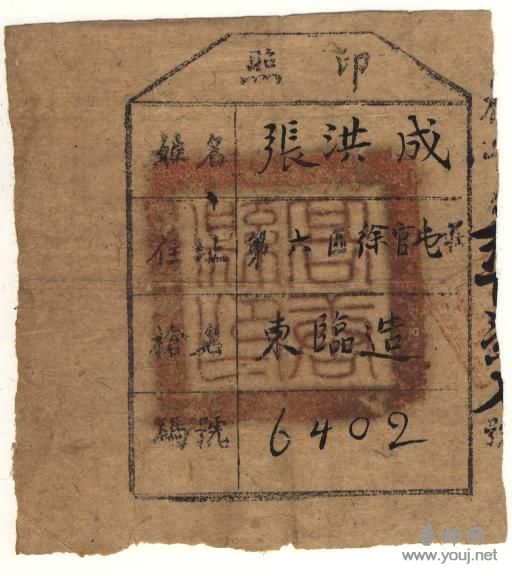 印照
姓名 張洪成
住址 第六區徐官屯莊
槍名 東臨造
碼號 6402
號
www.youj.net